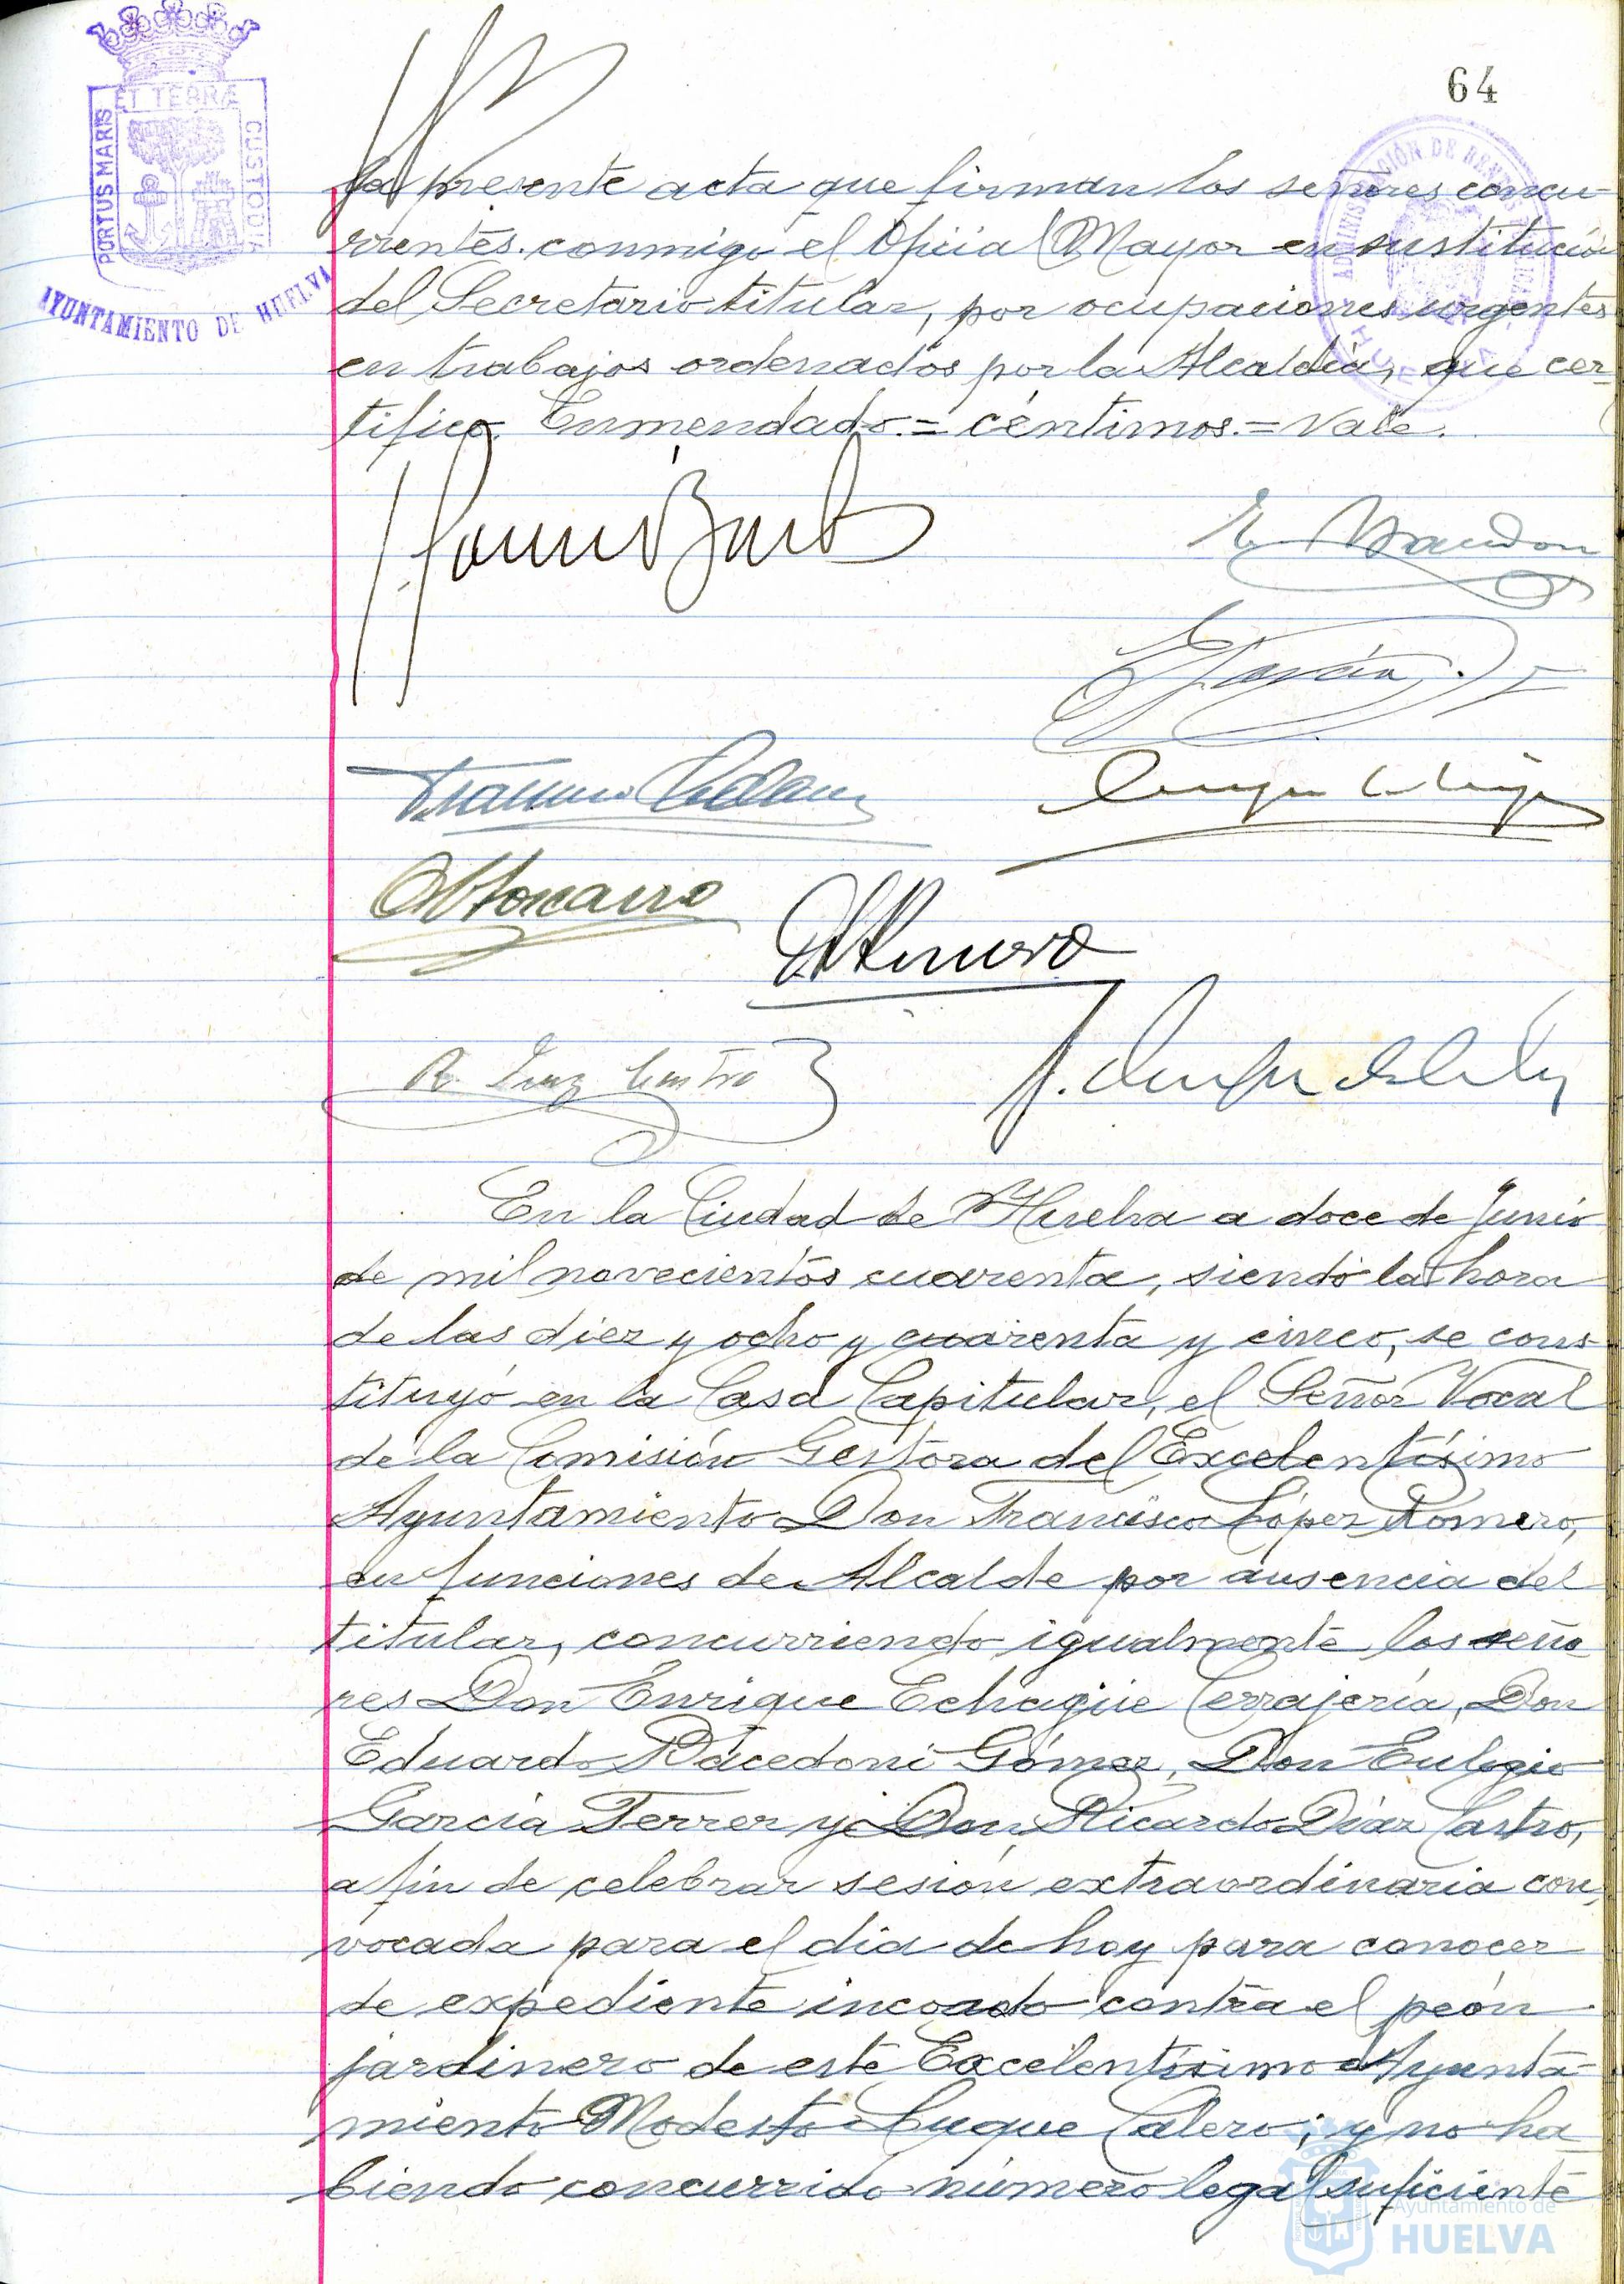 64
PORTUS MARIS ET TERRÆ CUSTODIA
AYUNTAMIENTO DE HUELVA
la presente acta que firman los señores concu-
rrentes conmigo el Oficial Mayor en sustitución
del Secretario titular, por ocupaciones urgentes
en trabajos ordenados por la Alcaldía, que cer-
tifico. Enmendado.=céntimos.=Vale.
R. Díaz Castro
En la Ciudad de Huelva a doce de Junio
de mil novecientos cuarenta, siendo la hora
de las diez y ocho y cuarenta y cinco, se cons-
tituyó en la Casa Capitular, el Señor Vocal
de la Comisión Gestora del Excelentísimo
Ayuntamiento Don Francisco López Romero,
en funciones de Alcalde por ausencia del
titular, concurriendo igualmente los seño
res Don Enrique Echagüe Cerrajería, Don
Eduardo Gómez, Don Eulogio
García Ferrer y Don Ricardo Díaz Castro,
a fin de celebrar sesión extraordinaria con-
vocada para el día de hoy para conocer
de expediente incoado contra el peón
jardinero de este Excelentísimo Ayunta-
miento Modesto Luque Calero; y no ha
biendo concurrido número legal suficiente
Ayuntamiento de
HUELVA